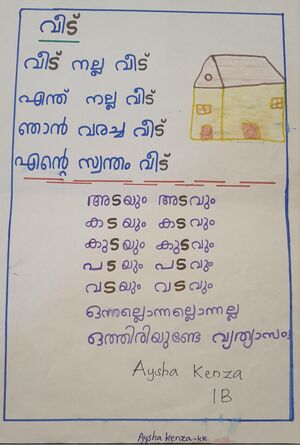 വീട്
വീട് നല്ല വീട്
എന്ത് നല്ല വീട്
ഞാൻ വരച്ച വീട്
എന്റെ സ്വന്തം വീട്
അടയും അടവും
കടയും കടവും
കുടയും കുടവും
പടയും പടവും
വടയും വടവും
ഒന്നല്ലൊന്നല്ലൊന്നല്ല
ഒത്തിരിയുണ്ടേ വ്യത്യാസം!
Aysha Kenza
1B
Aysha kenza-kk